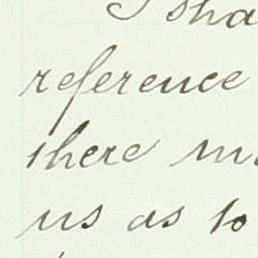 I sha
reference
there m
us as to